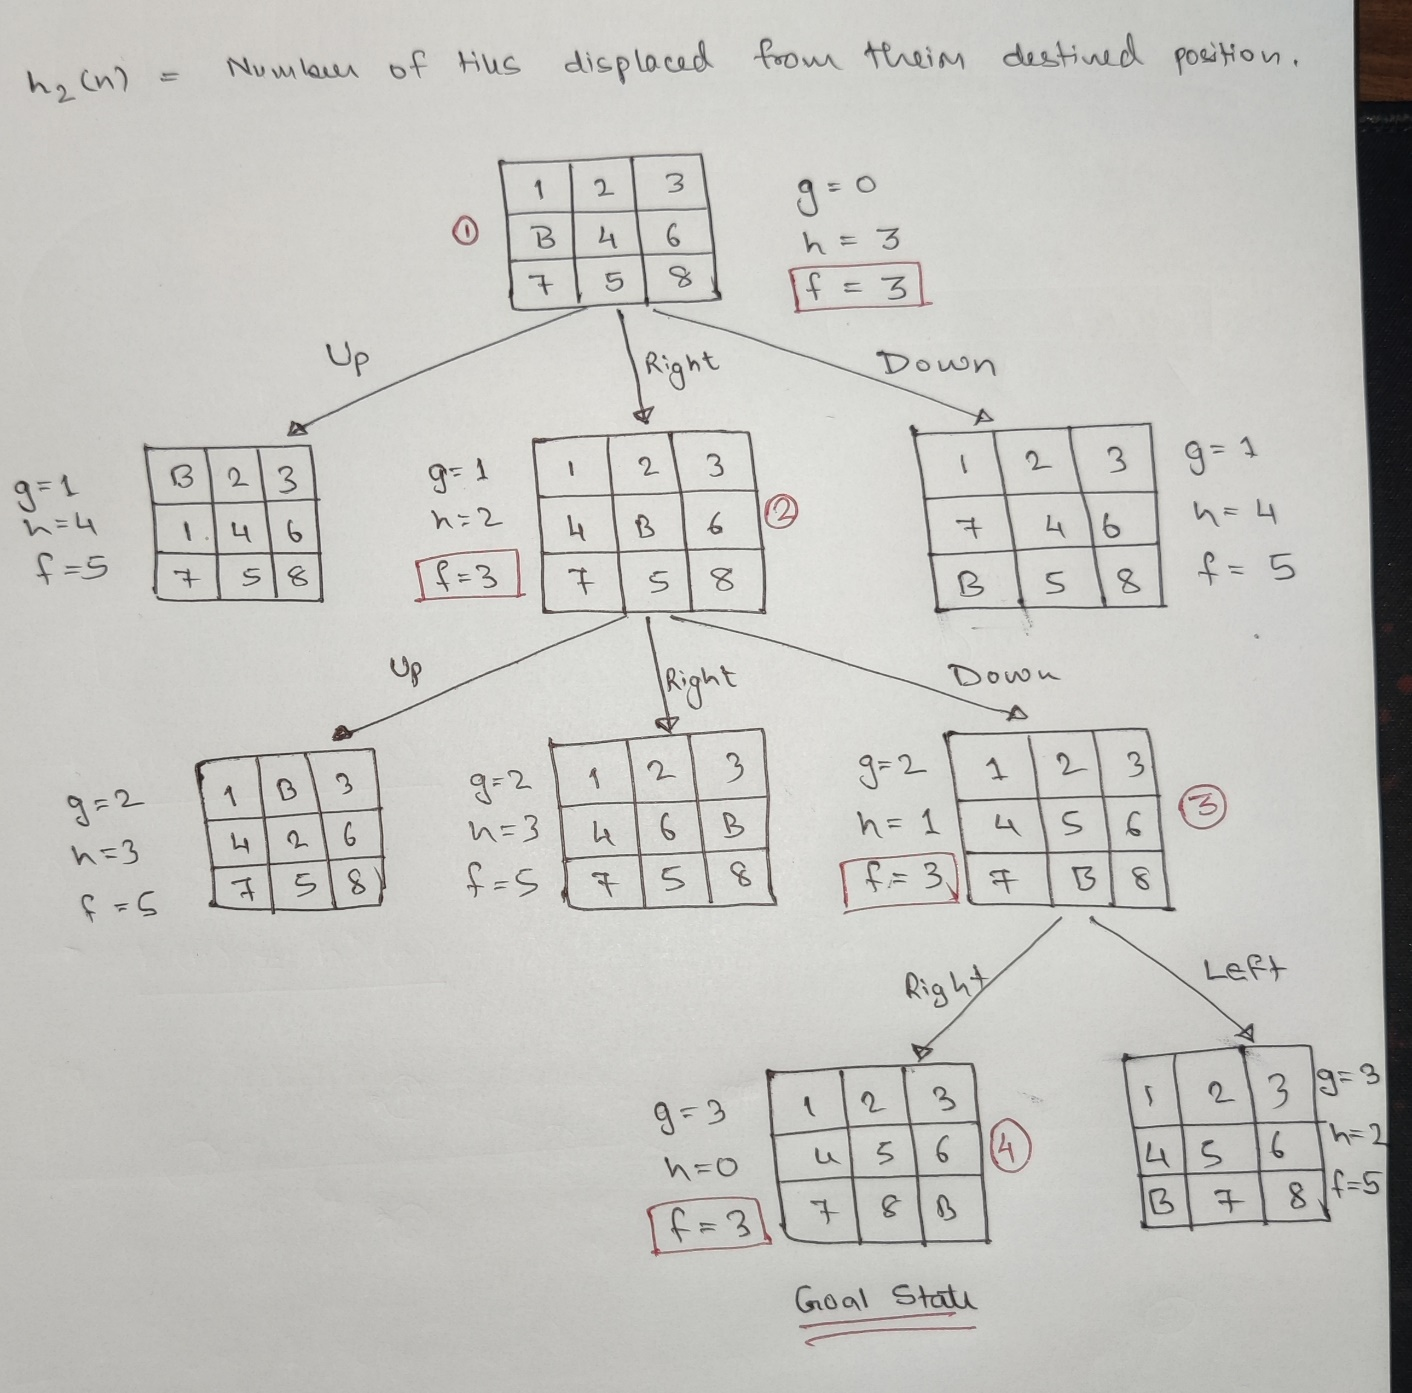 h₂(n) = Number of tiles displaced from their destined position.
1 2 3
① B 4 6
7 5 8
g = 0
h = 3
f = 3
Up
Right
Down
g=1
h=4
f=5
B 2 3
1 4 6
7 5 8
g=1
h=2
f=3
1 2 3
4 B 6 ②
7 5 8
1 2 3
7 4 6
B 5 8
g=1
h=4
f=5
Up
Right
Down
g=2
h=3
f=5
1 B 3
4 2 6
7 5 8
g=2
h=3
f=5
1 2 3
4 6 B
7 5 8
g=2
h=1
f=3
1 2 3
4 5 6 ③
7 B 8
Right
Left
g=3
h=0
f=3
1 2 3
4 5 6 ④
7 8 B
1 2 3
4 5 6
B 7 8
g=3
h=2
f=5
Goal State